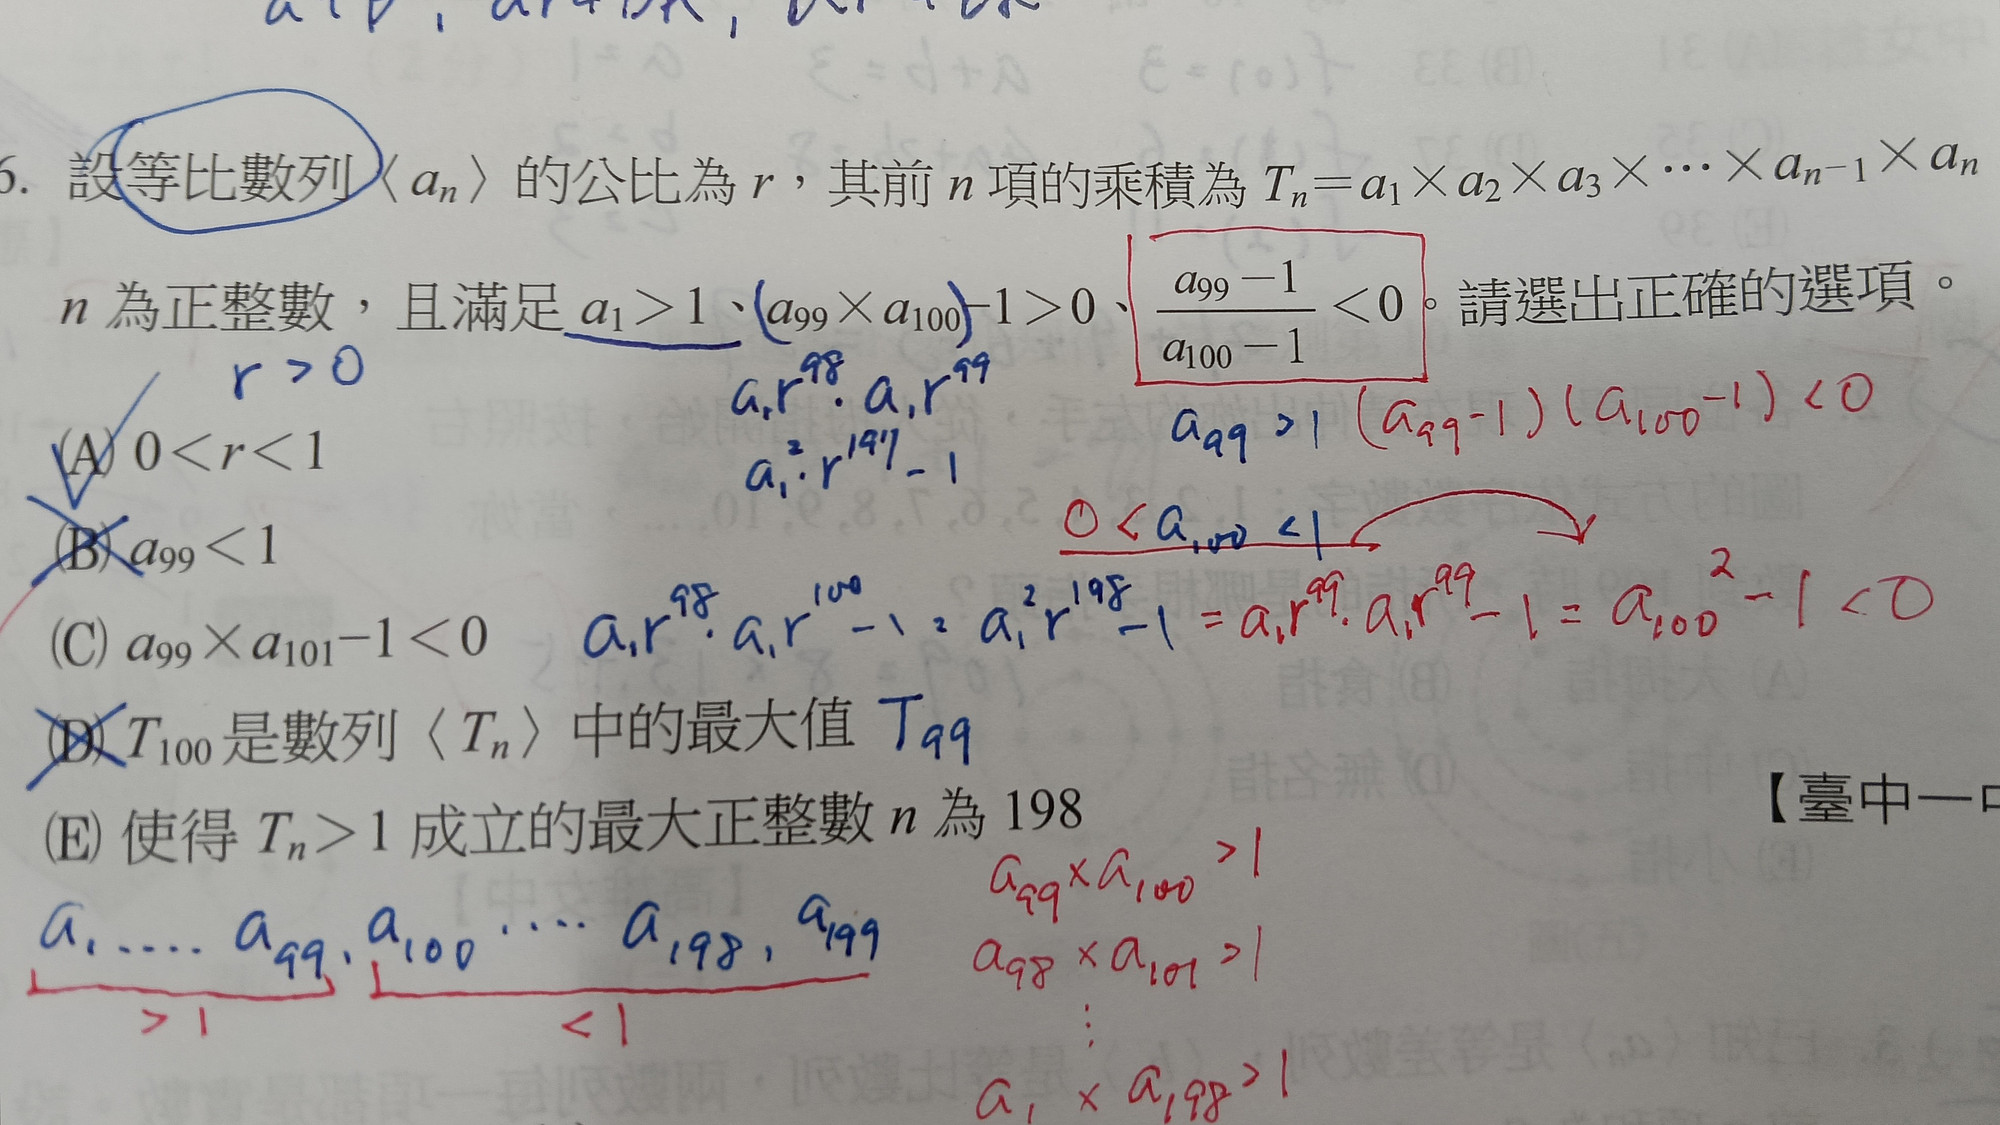 6. 設等比數列〈aₙ〉的公比為 r，其前 n 項的乘積為 Tₙ=a₁×a₂×a₃×⋯×aₙ₋₁×aₙ
n 為正整數，且滿足 a₁>1、(a₉₉×a₁₀₀)-1>0、(a₉₉-1)/(a₁₀₀-1)<0。請選出正確的選項。
r>0
a₁r⁹⁸·a₁r⁹⁹
a₉₉>1 (a₉₉-1)(a₁₀₀-1)<0
(A) 0<r<1
a₁²·r¹⁹⁷-1
0<a₁₀₀<1
(B) a₉₉<1
(C) a₉₉×a₁₀₁-1<0
a₁r⁹⁸·a₁r¹⁰⁰-1=a₁²r¹⁹⁸-1=a₁r⁹⁹·a₁r⁹⁹-1=a₁₀₀²-1<0
(D) T₁₀₀是數列〈Tₙ〉中的最大值 T₉₉
(E) 使得 Tₙ>1 成立的最大正整數 n 為 198
【臺中一中
a₉₉×a₁₀₀>1
a₁.....a₉₉,a₁₀₀.....a₁₉₈,a₁₉₉
a₉₈×a₁₀₁>1
>1 <1
⋮
a₁×a₁₉₈>1